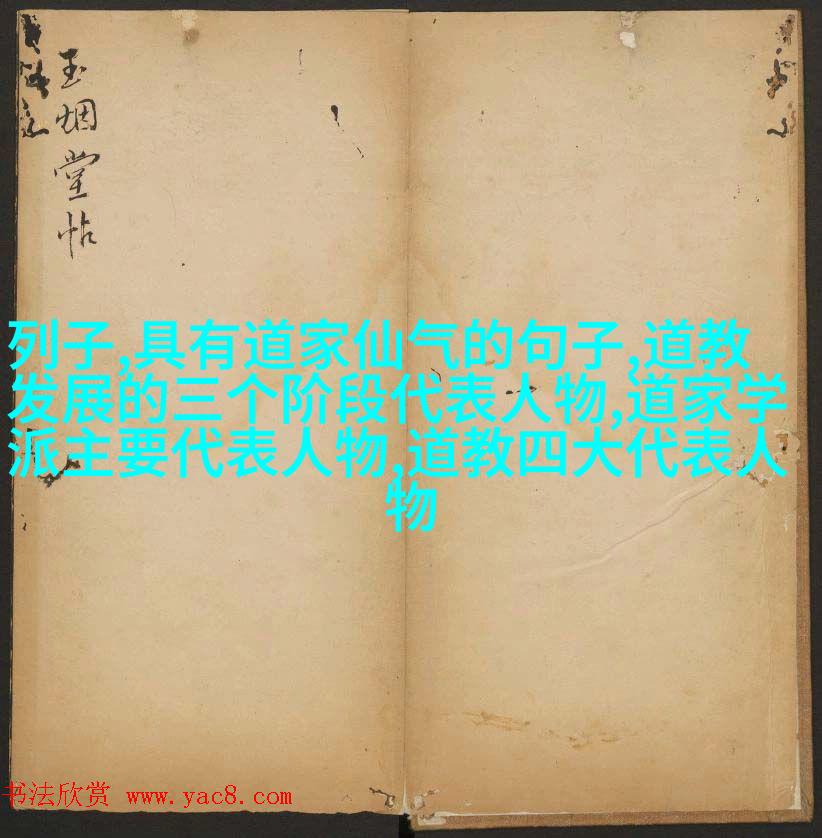 玉烟堂帖
列子,具有道家仙气的句子,道教
发展的三个阶段代表人物,道家学
派主要代表人物,道教四大代表人
物
书法欣赏 www.yac8.com